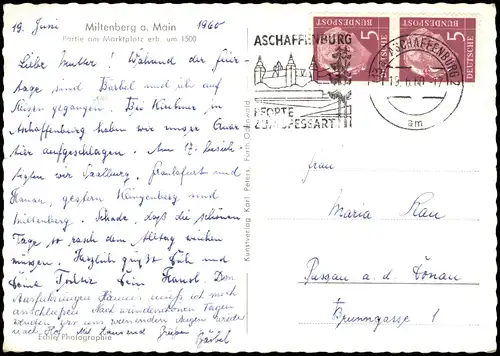 19. Juni Miltenberg a. Main 1960
Partie am Marktplatz erb. um 1500
Liebe Mutter! Während der Feier-
tage sind Bärbel und ich auf
Reisen gegangen. Bei Kirchner in
Aschaffenburg haben wir unser Quar-
tier aufgeschlagen. Am 17. besich-
tigten wir Saalburg, Frankfurt und
Hanau, gestern Klingenberg und
Miltenberg. Schade, daß die schönen
Tage so rasch dem Alltag weichen
müssen. Herzlich grüßt Euch und
Deine Tochter Dein Hansl. Den
Ausführungen Hannes muß ich mich
anschließen. Nach wunderschönen Tagen
werden wir uns Abend wieder
nach Hof. Mit tausend Grüßen Bärbel
Echte Photographie
Kunstverlag Karl Peters, Fürth Odenwald
ASCHAFFENBURG
PFORTE
ZUM SPESSART
ASCHAFFENBURG
19.6.60
am
5 DEUTSCHE BUNDESPOST
5 DEUTSCHE BUNDESPOST
Frau
Maria Rau
Passau a. d. Donau
Brunngasse 1